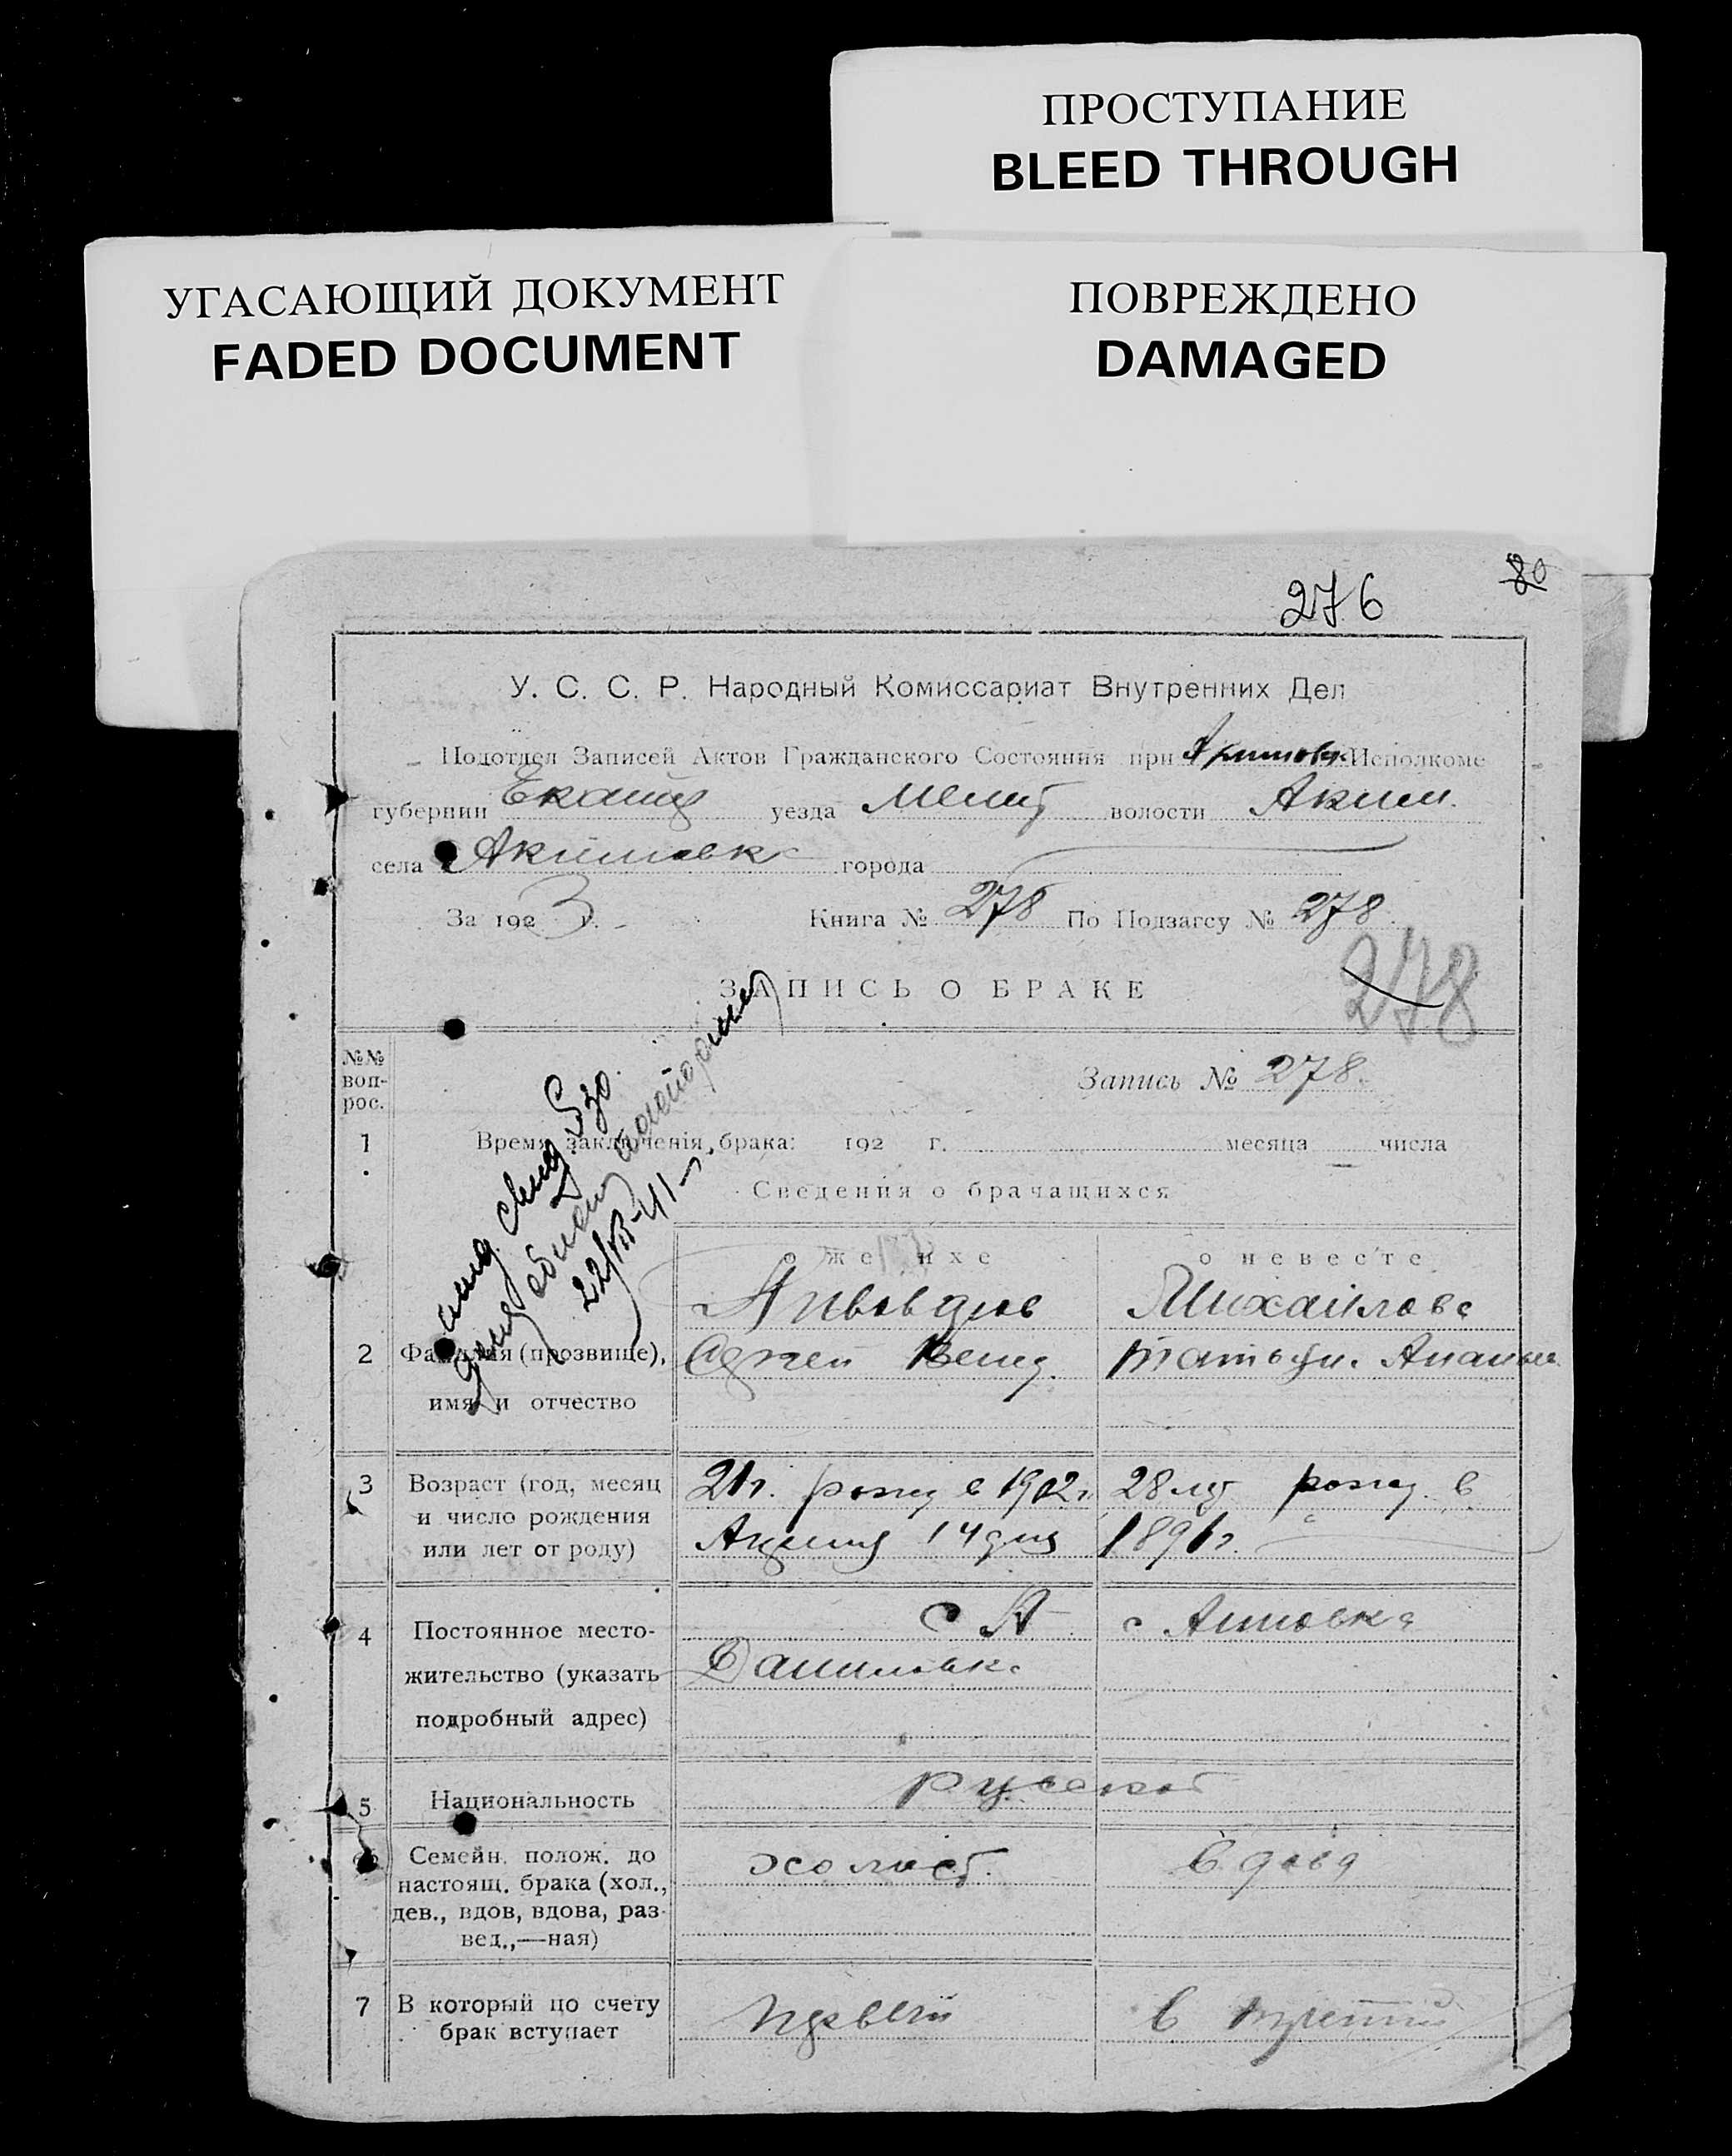 ПРОСТУПАНИЕ
BLEED THROUGH
УГАСАЮЩИЙ ДОКУМЕНТ
FADED DOCUMENT
ПОВРЕЖДЕНО
DAMAGED
80
276
У. С. С. Р. Народный Комиссариат Внутренних Дел
Подотдел Записей Актов Гражданского Состояния при Акимовк Исполкоме
губернии уезда Мелит волости Аким.
села Акимовка города
За 1923 г. Книга № 278 По Подзагсу № 278
278
ЗАПИСЬ О БРАКЕ
№№ воп-рос.
Запись № 278.
1 Время заключенія брака: 192 г. месяца числа
Сведения о брачащихся
22/VII-41 г.
о женихе о невесте
Михайлова
2 Фамилия (прозвище),
имя и отчество
Татьян. Ананьев
3 Возраст (год, месяц
и число рождения
или лет от роду)
21 г. рожд в 1902 г.
14 дня
28 лет рожд. в
1896 г.
4 Постоянное место-
жительство (указать
подробный адрес)
с А
Даниловка
с
5 Национальность
русской
6 Семейн. полож. до
настоящ. брака (хол.,
дев., вдов, вдова, раз-
вед.,—ная)
холост.
вдова
7 В который по счету
брак вступает
первый
в третий